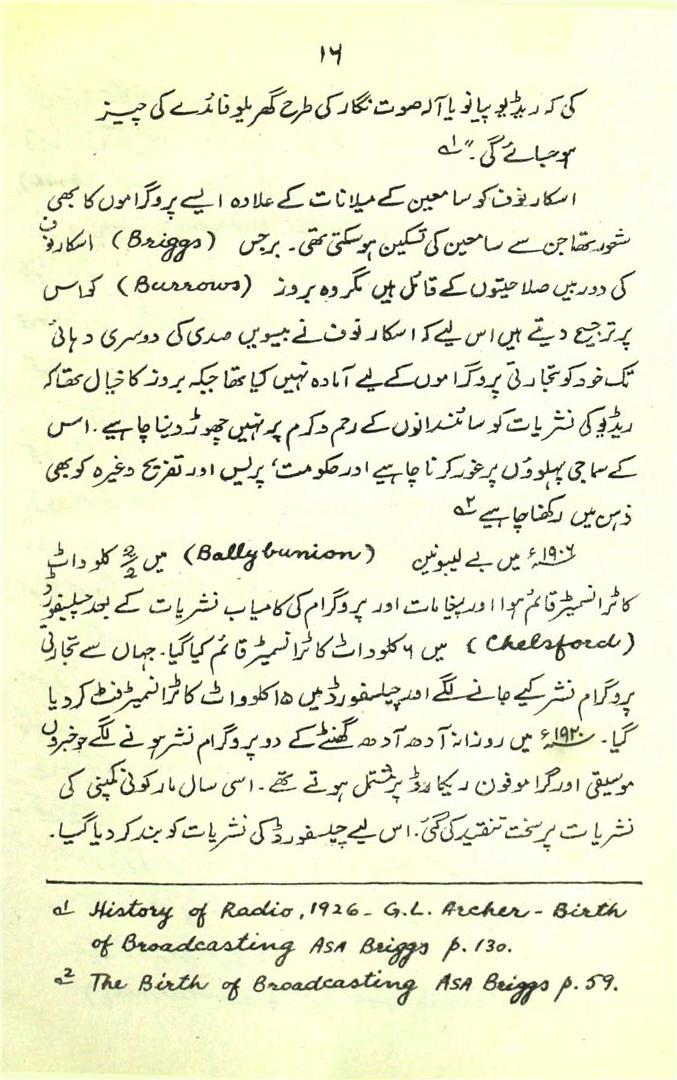 ۱۶
کی کہ ریڈیو پیانو یا آلہ صوت نگار کی طرح گھریلو فائدے کی چیز
ہو جائے گی۔" ۱؎
اسکارنوف کو سامعین کے میلانات کے علاوہ ایسے پروگراموں کا بھی
شعور تھا جن سے سامعین کی تسکین ہو سکتی تھی۔ برجس (Briggs) اسکارنوف
کی دوربیں صلاحیتوں کے قائل ہیں مگر وہ بروز (Burrows) کو اس
پر ترجیح دیتے ہیں اس لیے کہ اسکارنوف نے بیسویں صدی کی دوسری دہائی
تک خود کو تجارتی پروگراموں کے لیے آمادہ نہیں کیا تھا جبکہ بروز کا خیال تھا کہ
ریڈیو کی نشریات کو سائنسدانوں کے رحم و کرم پر نہیں چھوڑ دینا چاہیے۔ اس
کے سماجی پہلوؤں پر غور کرنا چاہیے اور حکومت، پریس اور تفریح وغیرہ کو بھی
ذہن میں رکھنا چاہیے ۲؎
۱۹۰۶ء میں بے لیبونین (Ballybunion) میں کلو واٹ
کا ٹرانسمیٹر قائم ہوا اور پیغامات اور پروگرام کی کامیاب نشریات کے بعد چیلسفورڈ
(Chelsford) میں ۶ کلو واٹ کا ٹرانسمیٹر قائم کیا گیا۔ جہاں سے تجارتی
پروگرام نشر کیے جانے لگے اور چیلسفورڈ میں ۱۵ کلو واٹ کا ٹرانسمیٹر فٹ کر دیا
گیا۔ ۱۹۲۰ء میں روزانہ آدھ آدھ گھنٹے کے دو پروگرام نشر ہونے لگے جو خبروں
موسیقی اور گراموفون ریکارڈ پر مشتمل ہوتے تھے۔ اسی سال مارکونی کمپنی کی
نشریات پر سخت تنقید کی گئی۔ اس لیے چیلسفورڈ کی نشریات کو بند کر دیا گیا۔
۱؎ History of Radio, 1926 - G.L. Archer - Birth
of Broadcasting ASA Briggs p. 130.
۲؎ The Birth of Broadcasting ASA Briggs p. 59.